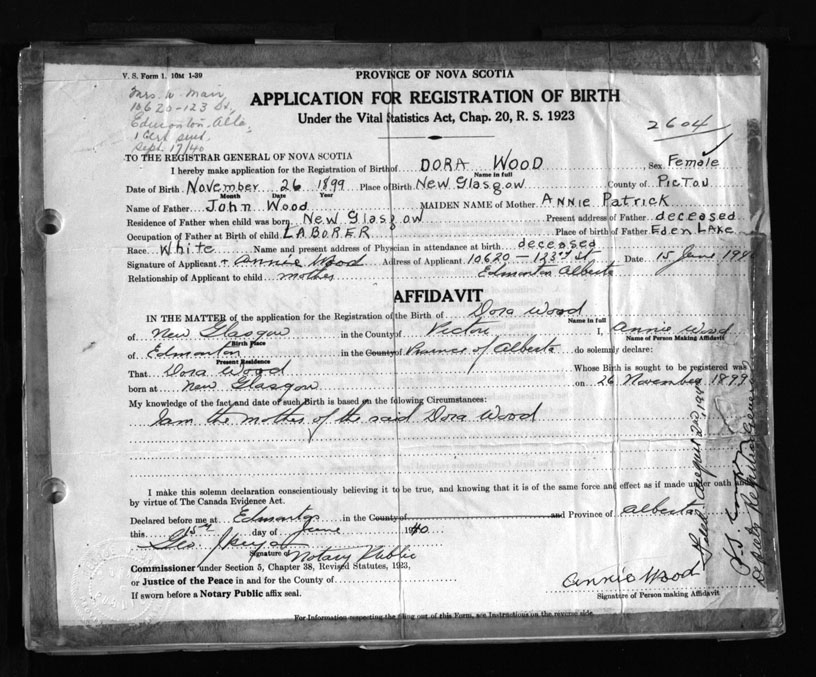 V. S. Form 1. 10M 1-39
PROVINCE OF NOVA SCOTIA
Mrs. W. Marr
10620-123 St,
Edmonton, Alta,
1 Cert sent
Sept. 17/40
APPLICATION FOR REGISTRATION OF BIRTH
Under the Vital Statistics Act, Chap. 20, R. S. 1923
2604
TO THE REGISTRAR GENERAL OF NOVA SCOTIA
I hereby make application for the Registration of Birth of DORA WOOD, Sex Female
Name in full
Date of Birth November 26 1899 Place of Birth New Glasgow County of PICTOU
Month Date Year
Name of Father John Wood MAIDEN NAME of Mother ANNIE PATRICK
Residence of Father when child was born New Glasgow Present address of Father deceased
Occupation of Father at Birth of child LABORER Place of birth of Father EDEN LAKE
Race White Name and present address of Physician in attendance at birth deceased
Signature of Applicant + Annie Wood Address of Applicant 10620 - 123rd St Date 15 June 194
Relationship of Applicant to child mother Edmonton Alberta
AFFIDAVIT
IN THE MATTER of the application for the Registration of the Birth of Dora Wood
Name in full
of New Glasgow in the County of Pictou I, Annie Wood
Birth Place Name of Person Making Affidavit
of Edmonton in the County of Province of Alberta do solemnly declare:
Present Residence
That Dora Wood Whose Birth is sought to be registered was
born at New Glasgow on 26 November 1899
My knowledge of the fact and date of such Birth is based on the following Circumstances:
I am the mother of the said Dora Wood
I make this solemn declaration conscientiously believing it to be true, and knowing that it is of the same force and effect as if made under oath and
by virtue of The Canada Evidence Act.
Declared before me at Edmonton in the County of and Province of Alberta
this 15th day of June 1940
Geo
Signature of Notary Public
Commissioner under Section 5, Chapter 38, Revised Statutes, 1923,
or Justice of the Peace in and for the County of
If sworn before a Notary Public affix seal.
Annie Wood
Signature of Person making Affidavit
For Information respecting the filling out of this Form, see Instructions on the reverse side.
Filed August 22, 19
Deputy Registrar General